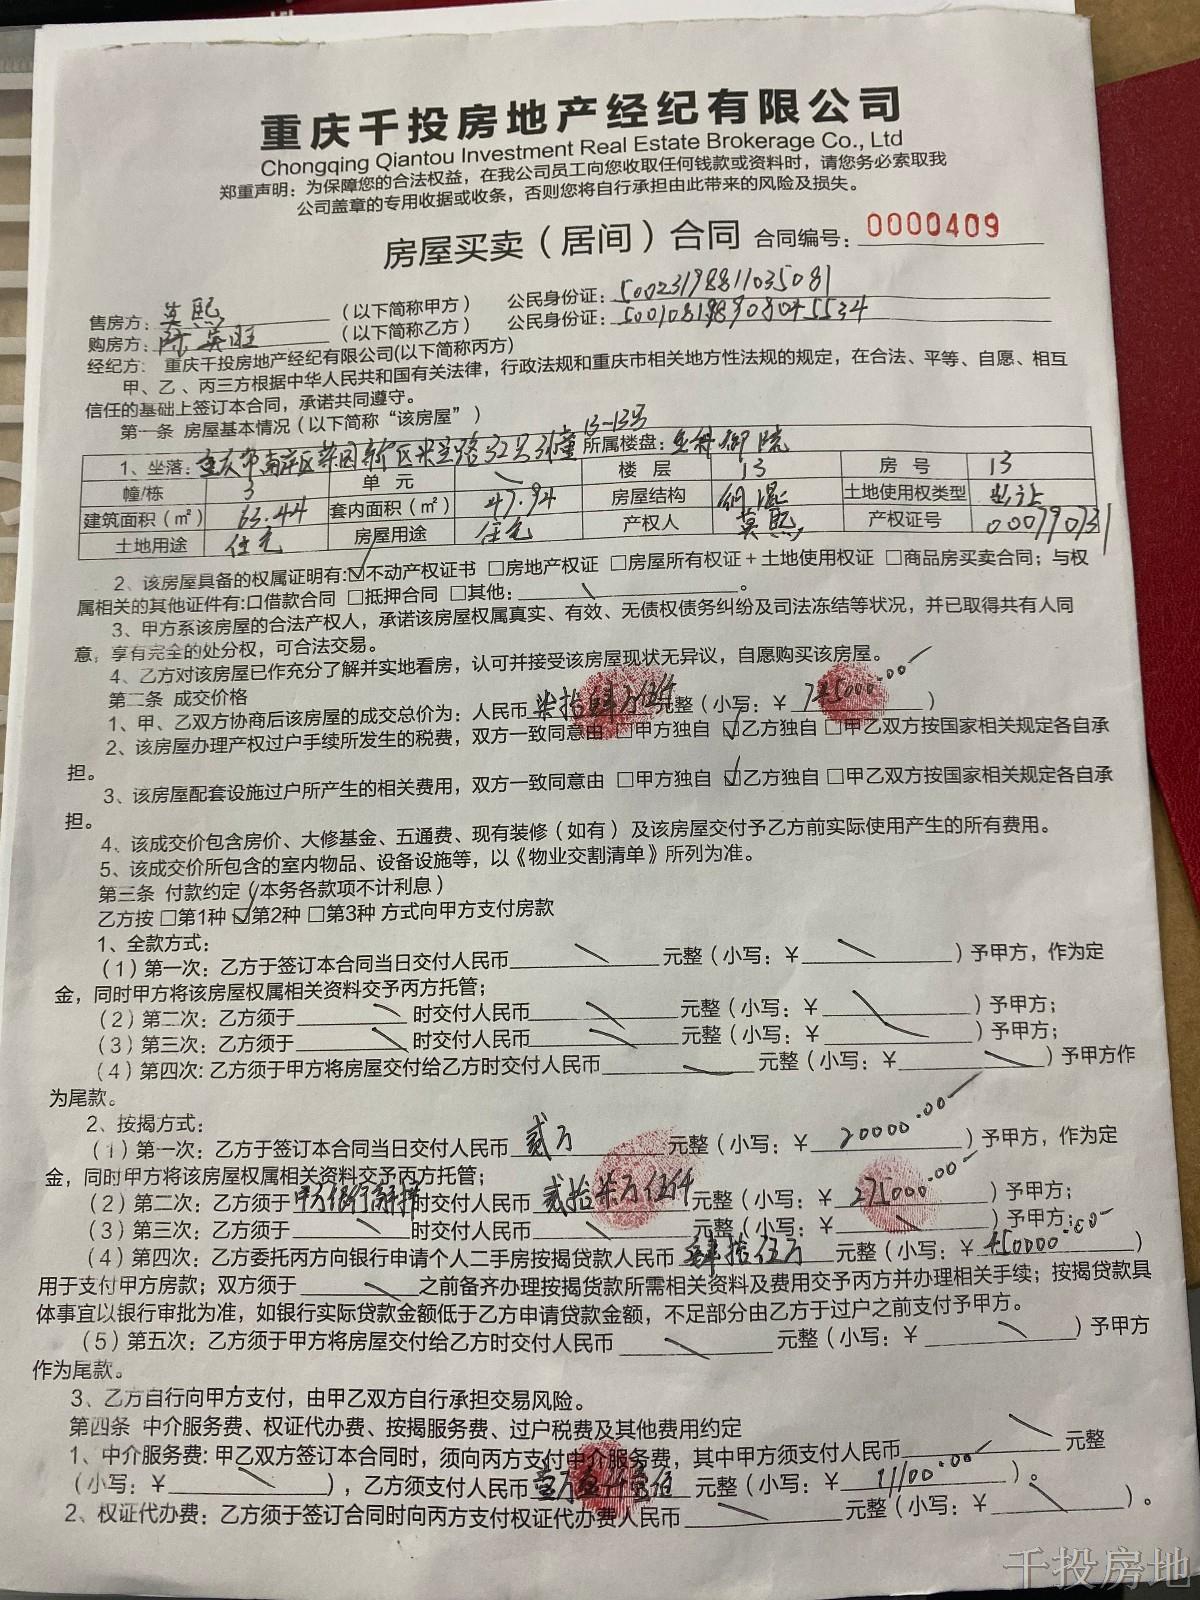 重庆千投房地产经纪有限公司
Chongqing Qiantou Investment Real Estate Brokerage Co., Ltd
郑重声明：为保障您的合法权益，在我公司员工向您收取任何钱款或资料时，请您务必索取我
公司盖章的专用收据或收条，否则您将自行承担由此带来的风险及损失。
房屋买卖（居间）合同 合同编号：0000409
售房方：莫熙（以下简称甲方） 公民身份证：500231198811035081
购房方：陈英旺（以下简称乙方） 公民身份证：
经纪方：重庆千投房地产经纪有限公司(以下简称丙方)
甲、乙、丙三方根据中华人民共和国有关法律，行政法规和重庆市相关地方性法规的规定，在合法、平等、自愿、相互
信任的基础上签订本合同，承诺共同遵守。
第一条 房屋基本情况（以下简称“该房屋”）
1、坐落：重庆市南岸区茶园新区米兰路32号3幢13-13号 所属楼盘：金科御院
幢/栋 3 单元 楼层 13 房号 13
建筑面积（㎡） 63.44 套内面积（㎡） 47.94 房屋结构 钢混 土地使用权类型 出让
土地用途 住宅 房屋用途 住宅 产权人 莫熙 产权证号 000790731
2、该房屋具备的权属证明有:☑不动产权证书 □房地产权证 □房屋所有权证＋土地使用权证 □商品房买卖合同；与权
属相关的其他证件有:口借款合同 □抵押合同 □其他: 。
3、甲方系该房屋的合法产权人，承诺该房屋权属真实、有效、无债权债务纠纷及司法冻结等状况，并已取得共有人同
意，享有完全的处分权，可合法交易。
4、乙方对该房屋已作充分了解并实地看房，认可并接受该房屋现状无异议，自愿购买该房屋。
第二条 成交价格
1、甲、乙双方协商后该房屋的成交总价为：人民币柒拾肆万伍仟元整（小写：￥745000.00）
2、该房屋办理产权过户手续所发生的税费，双方一致同意由 □甲方独自 ☑乙方独自 □甲乙双方按国家相关规定各自承
担。
3、该房屋配套设施过户所产生的相关费用，双方一致同意由 □甲方独自 ☑乙方独自 □甲乙双方按国家相关规定各自承
担。
4、该成交价包含房价、大修基金、五通费、现有装修（如有）及该房屋交付予乙方前实际使用产生的所有费用。
5、该成交价所包含的室内物品、设备设施等，以《物业交割清单》所列为准。
第三条 付款约定（本务各款项不计利息）
乙方按 □第1种 ☑第2种 □第3种 方式向甲方支付房款
1、全款方式：
（1）第一次：乙方于签订本合同当日交付人民币 元整（小写：￥ ）予甲方，作为定
金，同时甲方将该房屋权属相关资料交予丙方托管；
（2）第二次：乙方须于 时交付人民币 元整（小写：￥ ）予甲方；
（3）第三次：乙方须于 时交付人民币 元整（小写：￥ ）予甲方；
（4）第四次: 乙方须于甲方将房屋交付给乙方时交付人民币 元整（小写：￥ ）予甲方作
为尾款。
2、按揭方式：
（1）第一次：乙方于签订本合同当日交付人民币 贰万 元整（小写：￥20000.00）予甲方，作为定
金，同时甲方将该房屋权属相关资料交予丙方托管；
（2）第二次：乙方须于甲方银行解押时交付人民币 贰拾柒万伍仟元整（小写：￥275000.00）予甲方；
（3）第三次：乙方须于 时交付人民币 元整（小写：￥ ）予甲方；
（4）第四次：乙方委托丙方向银行申请个人二手房按揭贷款人民币 肆拾伍万 元整（小写：￥450000.00）
用于支付甲方房款；双方须于 之前备齐办理按揭货款所需相关资料及费用交予丙方并办理相关手续；按揭贷款具
体事宜以银行审批为准，如银行实际贷款金额低于乙方申请贷款金额，不足部分由乙方于过户之前支付予甲方。
（5）第五次：乙方须于甲方将房屋交付给乙方时交付人民币 元整（小写：￥ ）予甲方
作为尾款。
3、乙方自行向甲方支付，由甲乙双方自行承担交易风险。
第四条 中介服务费、权证代办费、按揭服务费、过户税费及其他费用约定
1、中介服务费: 甲乙双方签订本合同时，须向丙方支付中介服务费，其中甲方须支付人民币 元整
（小写：￥ ），乙方须支付人民币壹万壹仟壹佰 元整（小写：￥11100.00）。
2、权证代办费：乙方须于签订合同时向丙方支付权证代办费人民币 元整（小写：￥ ）。
千投房地